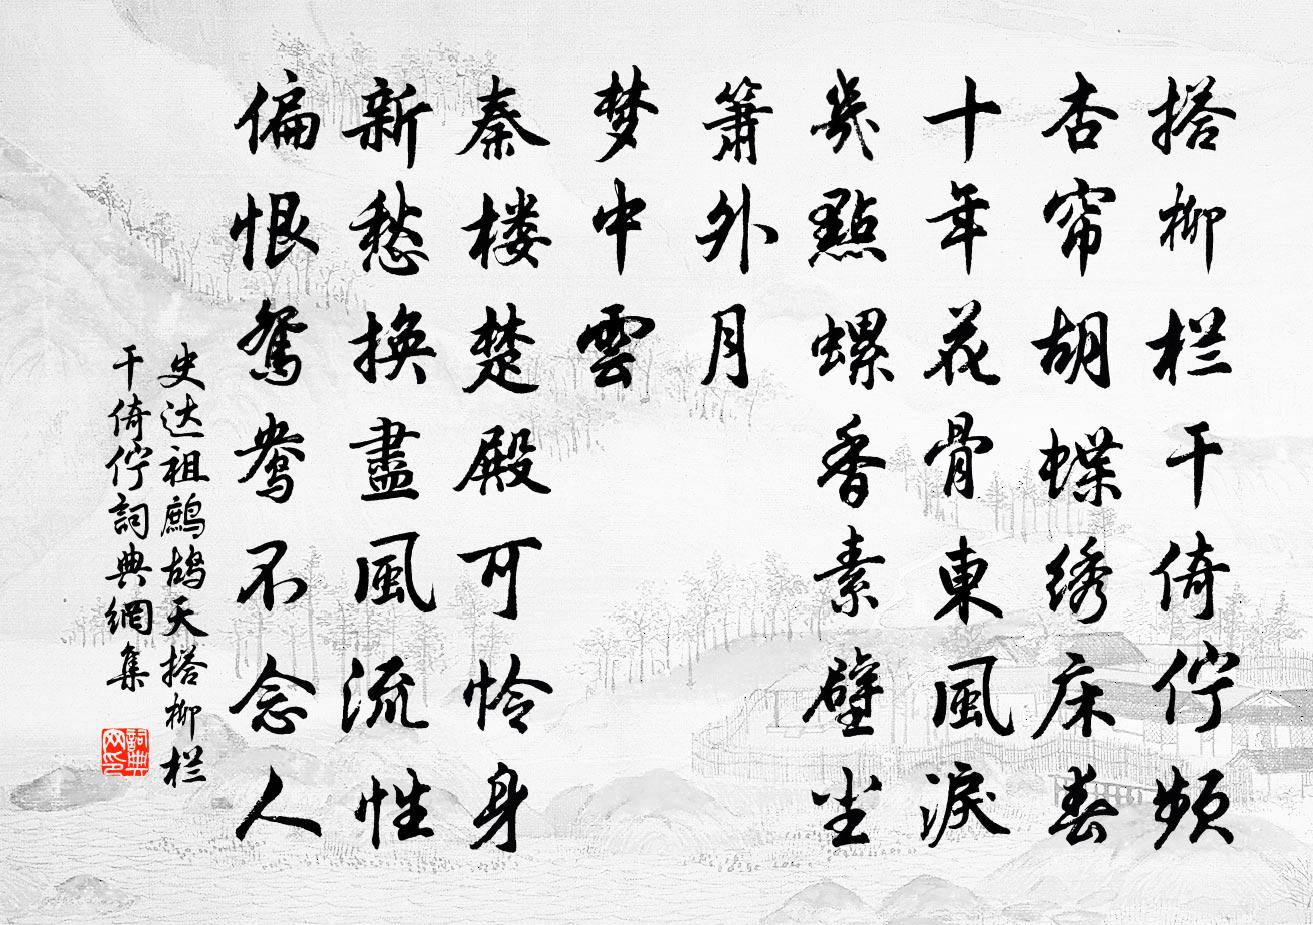 搭柳栏干倚伫频
杏帘胡蝶绣床春
十年花骨東風淚
幾點螺香素壁塵
簫外月
梦中雲
秦楼楚殿可怜身
新愁換盡風流性
偏恨駕鴦不念人
史达祖鷓鴣天搭柳栏
干倚伫詞典網集
詞典網印